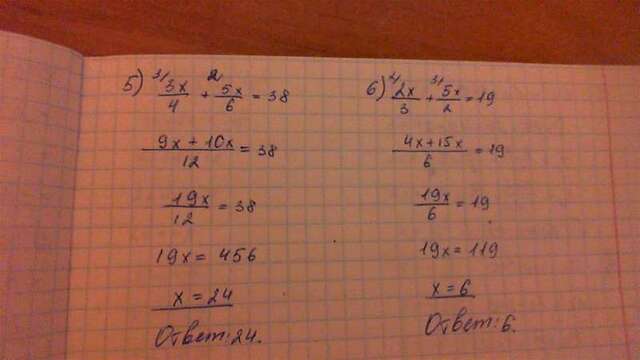 5) 3/ 3x/4 + 2/ 5x/6 = 38
(9x + 10x)/12 = 38
19x/12 = 38
19x = 456
x = 24
Ответ: 24.
6) 2/ 2x/3 + 3/ 5x/2 = 19
(4x + 15x)/6 = 19
19x/6 = 19
19x = 119
x = 6
Ответ: 6.